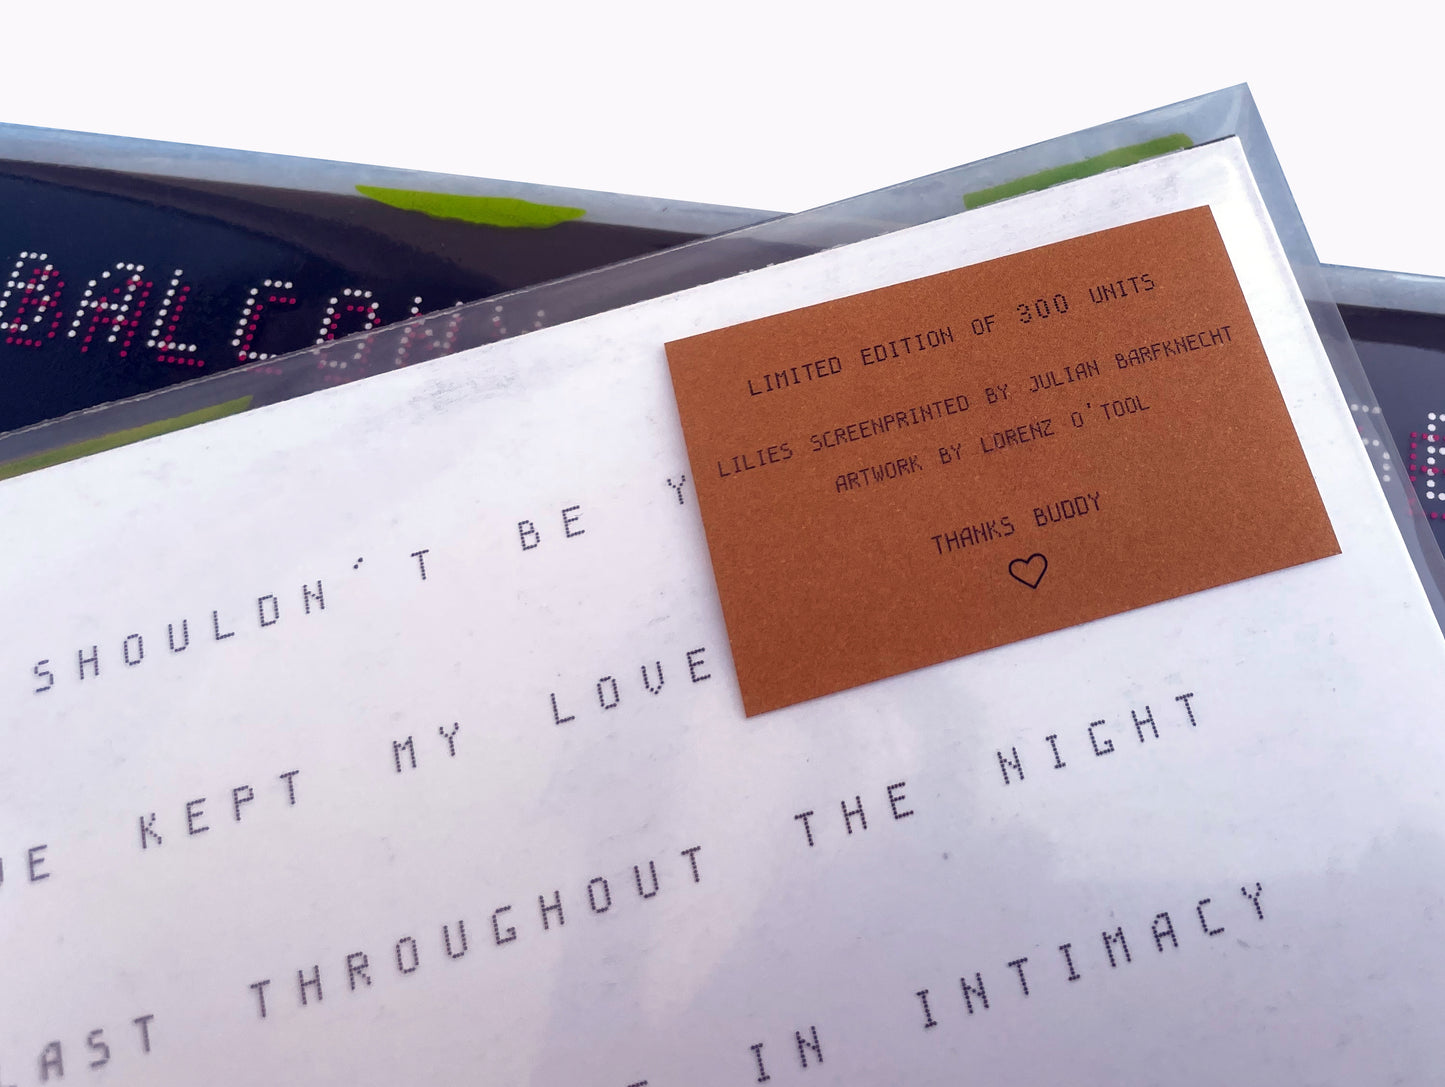 BALCONY
LIMITED EDITION OF 300 UNITS
LILIES SCREENPRINTED BY JULIAN BARFKNECHT
ARTWORK BY LORENZ O'TOOL
THANKS BUDDY
SHOULDN'T BE Y
KEPT MY LOVE
LAST THROUGHOUT THE NIGHT
IN INTIMACY